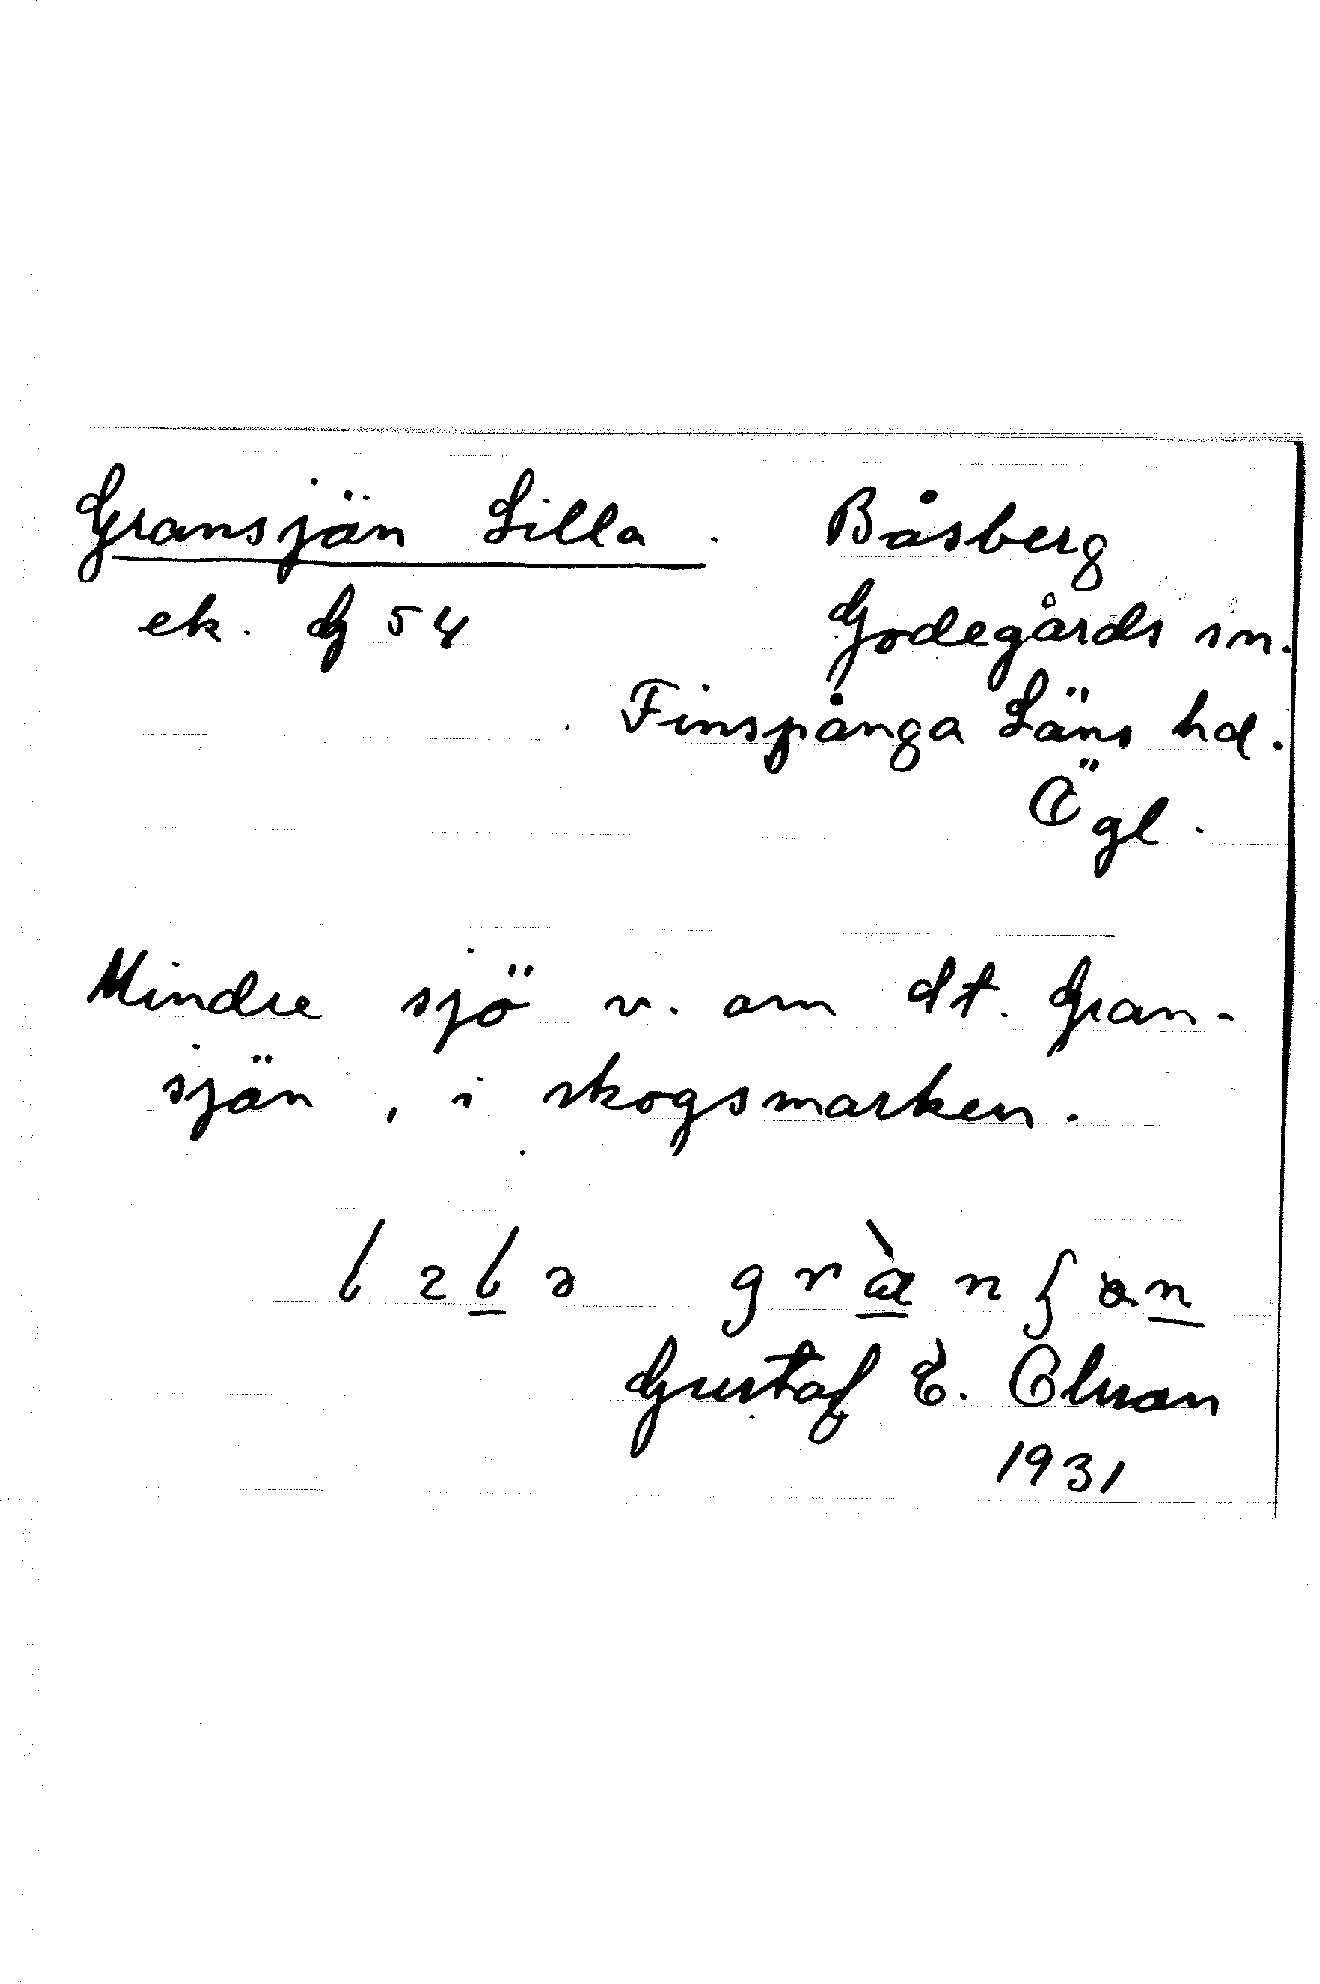 Gransjön Lilla. Båsberg
ek. G 54 Godegårds sn.
Finspånga Läns hd.
Ögl.
Mindre sjö v. om St. Gran-
sjön, i skogsmarken.
Gustaf E. Olsson
1931